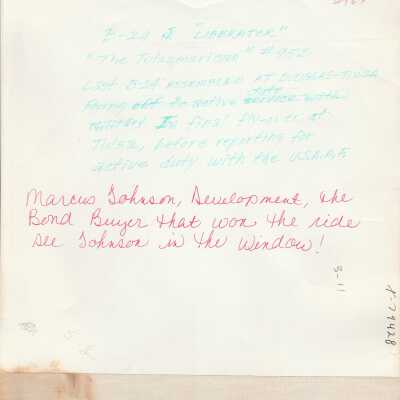 B-24 J "LIBERATER"
"The Tulsamerican" #952
Last B-24 ASSEMBLED AT DOUGLAS-TULSA
off to active service with
military In final fly-over at
Tulsa, before reporting for
active duty with the USAAF
Marcus Johnson, Development, the
Bond Buyer that won the ride
see Johnson in the window!
3-11